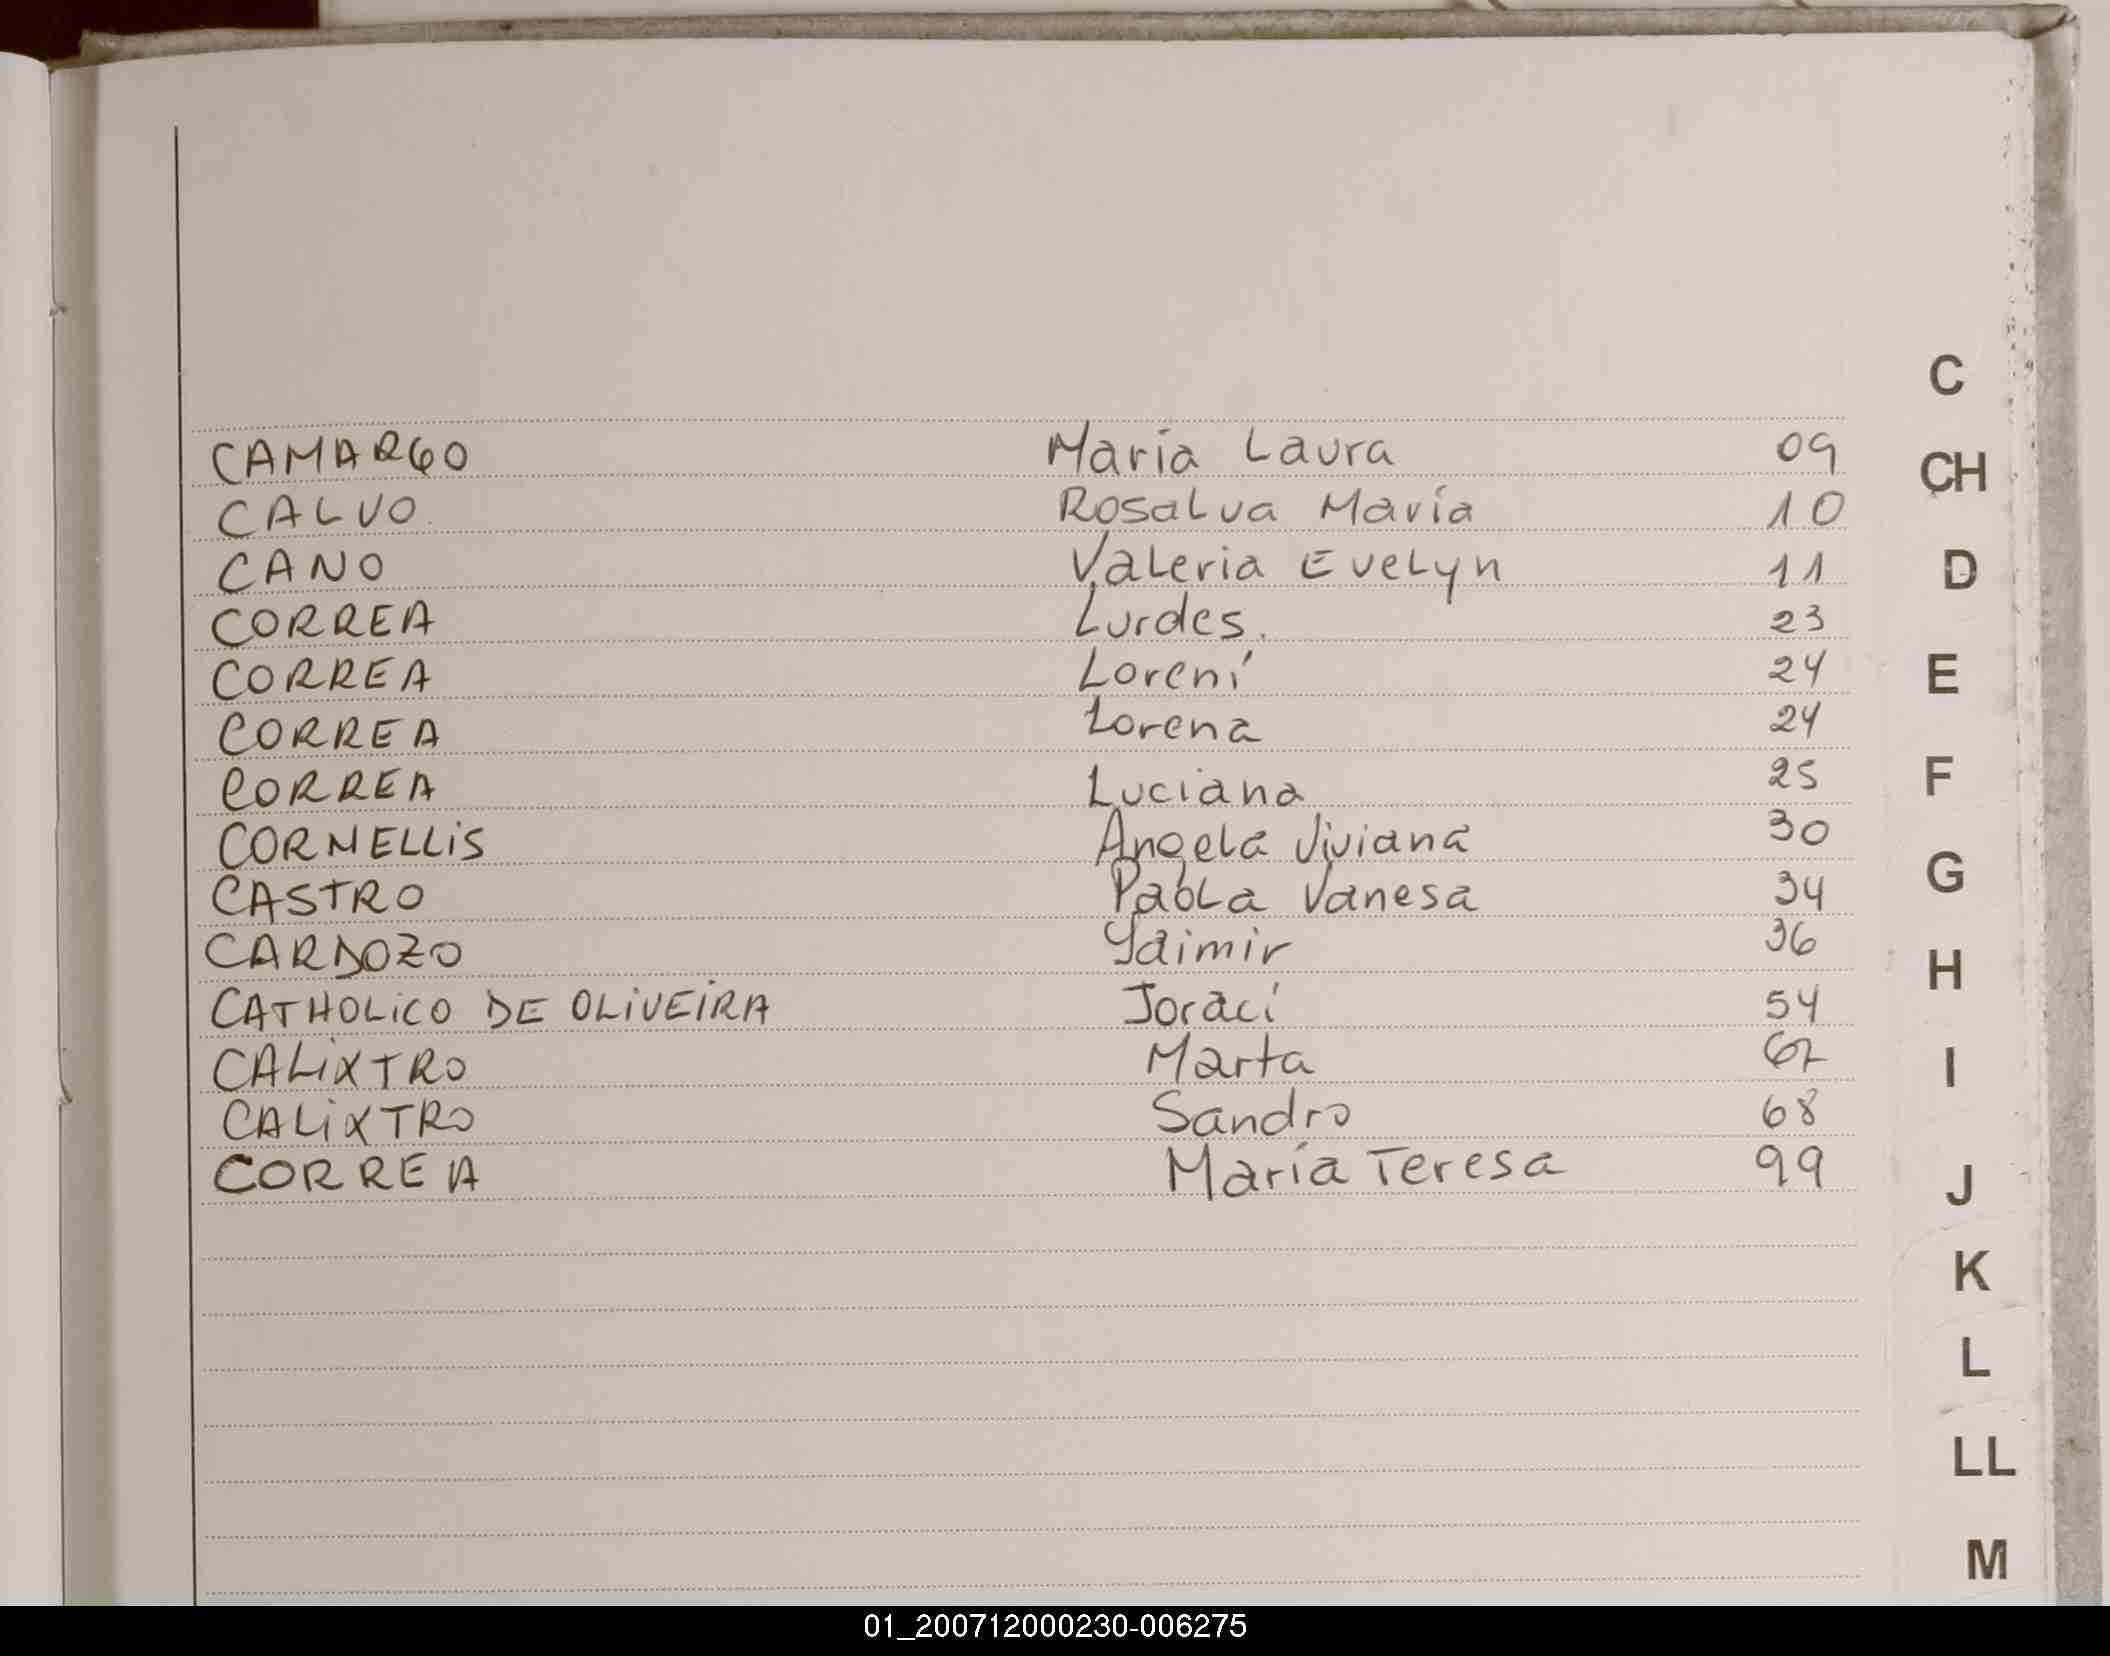 CAMARGO María Laura 09
CALVO Rosalva María 10
CANO Valeria Evelyn 11
CORREA Lurdes. 23
CORREA Lorení 24
CORREA Lorena 24
CORREA Luciana 25
CORNELLiS Angela Viviana 30
CASTRO Paola Vanesa 34
CARDOZO Yaimir 36
CATHOLiCO DE OLiVEiRA Joracì 54
CALiXTRO Marta 67
CALiXTRO Sandro 68
CORREA María Teresa 99
C
CH
D
E
F
G
H
I
J
K
L
LL
M
01_200712000230-006275